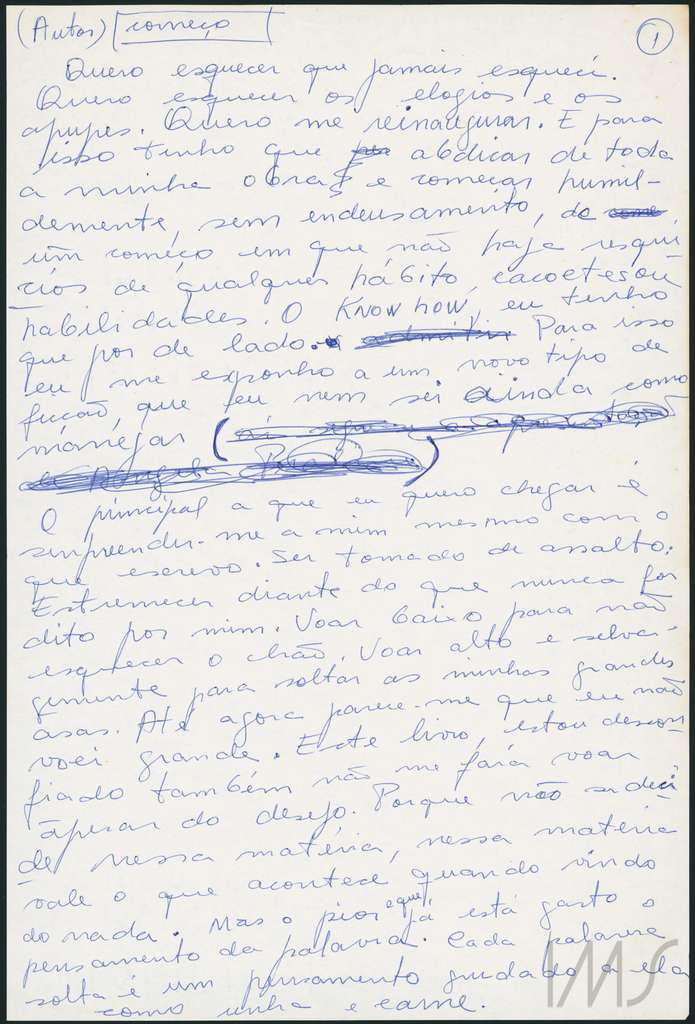 (Autor) começo
1
Quero esquecer que jamais esqueci.
Quero esquecer os elogios e os
apupos. Quero me reinaugurar. E para
isso tenho que abdicar de toda
a minha obra e começar humil-
demente, sem endeusamento, de
um começo em que não haja resquí-
cios de qualquer hábito, cacoetes ou
habilidades. O KNOW HOW eu tenho
que por de lado. Para isso
eu me exponho a um novo tipo de
ficcão, que eu nem sei ainda como
manejar (
)
O principal a que eu quero chegar é
surpreender-me a mim mesmo com o
que escrevo. Ser tomado de assalto:
Estremecer diante do que nunca foi
dito por mim. Voar baixo para não
esquecer o chão. Voar alto e selva-
gemente para soltar as minhas grandes
asas. Até agora parece-me que eu não
voei grande. Este livro, estou descon-
fiado também não me fará voar
apesar do desejo. Porque não se deci-
de nessa matéria, nessa matéria
vale o que acontece quando vindo
do nada. Mas o pior é que já está gasto o
pensamento da palavra. Cada palavra
solta é um pensamento grudado a ela
como unha e carne.
IMS